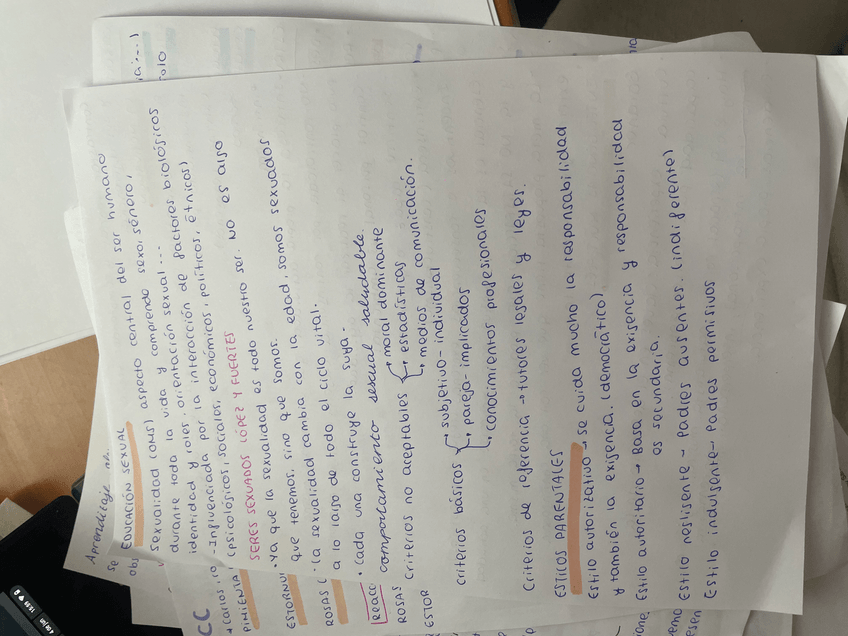 Aprendizaje
EDUCACIÓN SEXUAL
sexualidad (OMS) aspecto central del ser humano
durante toda la vida y comprende sexo, género,
identidad y roles, orientación sexual...
-Influenciada por la interacción de factores biológicos
(psicológicos, sociales, económicos, políticos, étnicos)
SERES SEXUADOS LÓPEZ Y FUERTES
·Ya que la sexualidad es todo nuestro ser. NO es algo
que tenemos, sino que somos.
·la sexualidad cambia con la edad, somos sexuados
a lo largo de todo el ciclo vital.
·Cada una construye la suya.
comportamiento sexual saludable.
criterios no aceptables → moral dominante
→ estadísticas
→ medios de comunicación.
criterios básicos → subjetivo-individual
→ pareja-implicados
→ conocimientos profesionales
Criterios de referencia → tutores legales y leyes.
ESTILOS PARENTALES
Estilo autoritativo → se cuida mucho la responsabilidad
y también la exigencia. (democrático)
Estilo autoritario → Basa en la exigencia y responsabilidad
es secundaria.
Estilo negligente - Padres ausentes. (indiferente)
Estilo indulgente - Padres permisivos
CC
PIMIENTA
ESTORNU
ROSAS
REACC
ROSAS
ESTOR